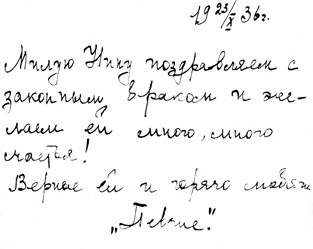 19 23/X 36 г.
Милую Нину поздравляем с
законным браком и же-
лаем ей много, много
счастья!
Верные ей и горячо любящ
„Певчие".